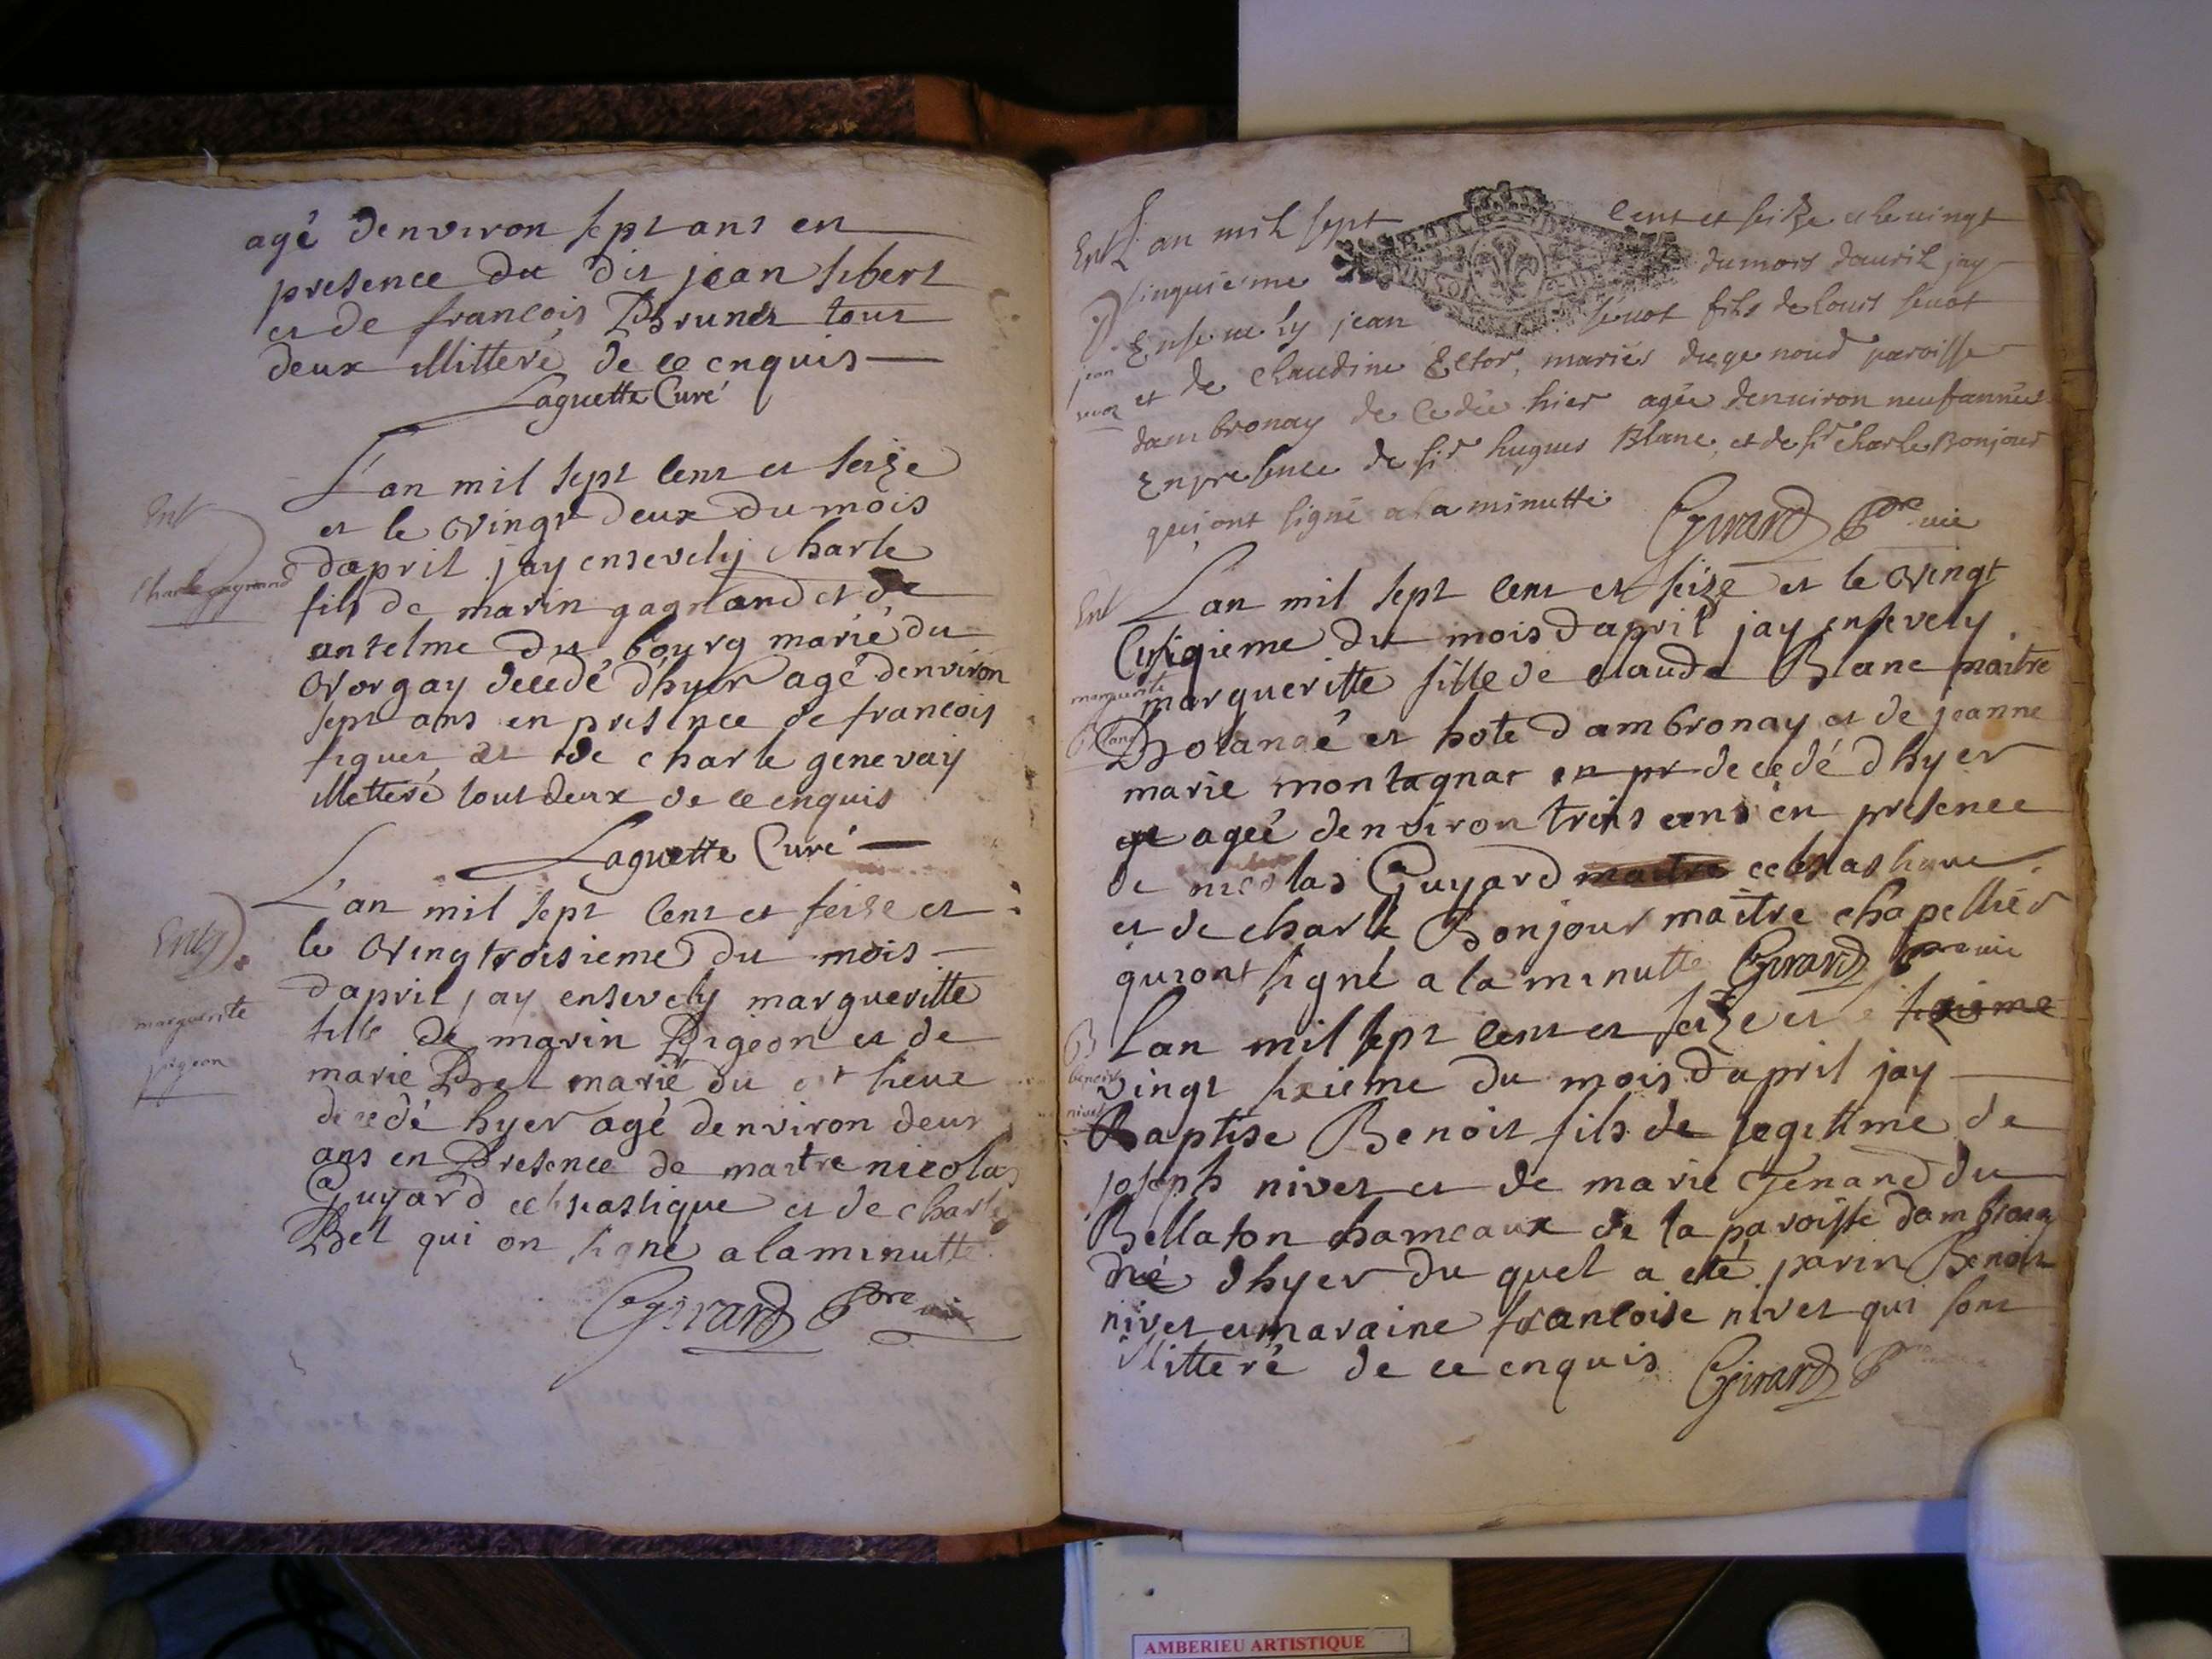 agé denviron sept ans en
presence du dit jean sibert
et de françois Brunet tout
deux illitteré de ce enquis
Laguette Curé
Ent
Charle gagnand
L'an mil sept cent et seize
et le vingt deux du mois
dapril jay ensevely charle
fils de marin gagnand et de
antelme du bourg marié du
vorgay decedé dhyer agé denviron
sept ans en presence de francois
siguet et de charle genevay
illetteré tout deux de ce enquis
Laguette Curé
Ent
marguerite
pigeon
L'an mil sept cent et seize et
le vingtroisieme du mois
dapril jay ensevely margueritte
fille de marin Pigeon et de
marie Bel marié du lieux
decedé hyer agé denviron deux
ans en Presence de maitre nicolas
Guyard eclesiastique et de charle
Bel qui on signé a la minutte
Girard Ptre vic
Ent
jean
L'an mil sept cent et seize et le vingt
sinquiéme du mois dauril jay
Ensevely jean seuot fils de louis seuot
et de claudine Ector, mariés du genoud paroisse
dambronay de cedée hier agée denuiron neuf années
Enpresence de sir hugues Blanc, et de sr charle Bonjour
qui ont signé a la minutte Girard Ptre vic
Ent
marguerite
Blanc
L'an mil sept cent et seize et le vingt
cinqieme du mois dapril jay ensevely
margueritte fille de claude Blanc maitre
Bolangé et hote dambronay et de jeanne
marie montagnat en pr decedé dhyer
et ageé denviron trois ans en presence
de nicolas Guyard maitre eclesiastique
et de charle Bonjour maitre chapellier
qui ont signé a la minutte Girard Ptre vic
B
benoit
nivet
Lan mil sept cent et seize et le sixieme
vingt sixieme du mois dapril jay
Baptise Benoit fils de legitime de
joseph nivet et de marie Tenand du
Bellaton hameaux de la paroisse dambronay
né dhyer du quel a eté parin Benoit
nivet et maraine francoise nivet qui sont
illitteré de ce enquis Girard Ptre
AMBERIEU ARTISTIQUE